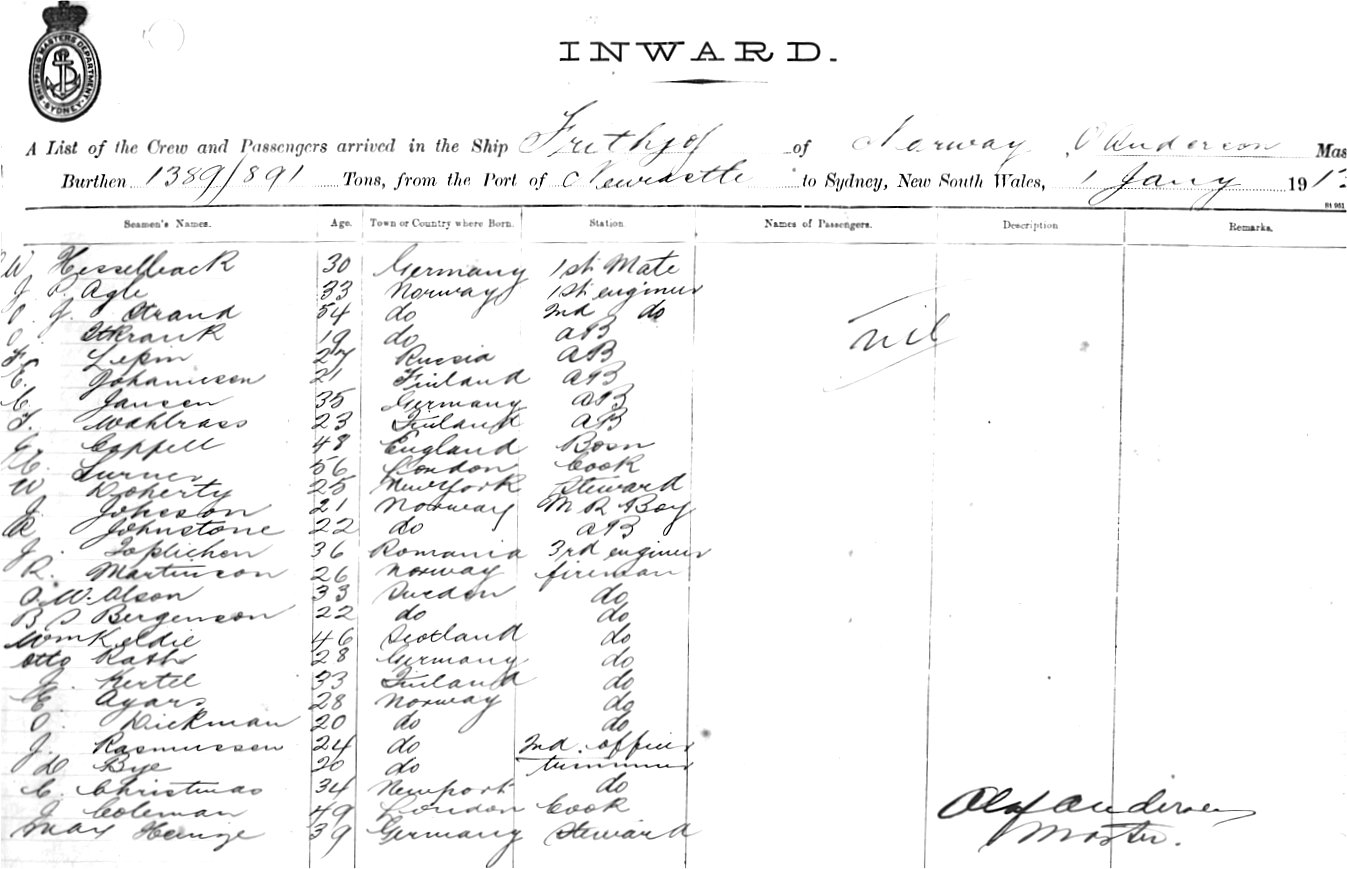 SHIPPING MASTERS DEPARTMENT SYDNEY
INWARD.
A List of the Crew and Passengers arrived in the Ship Frithjof of Norway, O Anderson Mas
Burthen 1389/891 Tons, from the Port of Newcastle to Sydney, New South Wales, 1 Jany 191
St 961
Seamen's Names. Age. Town or Country where Born. Station Names of Passengers. Description Remarks.
W Hesselback 30 Germany 1st Mate
J P. Agle 33 Norway 1st engineer
O. J. Strand 54 do 2nd do
19 do AB
nil
F. Lepin 27 Russia AB
E. Johannesen 21 Finland AB
C. Jansen 35 Germany AB
F. Wahlrass 23 Finland AB
G. Cappell 48 England Bosn
C. Turner 56 London Cook
W Doherty 25 New York Steward
J. Johnson 21 Norway M R Boy
R Johnstone 22 do AB
J. Toplichen 36 Romania 3rd engineer
R. Martinson 26 Norway fireman
O. W. Olson 33 Sweden do
B S Bergenson 22 do do
Wm Keldie 46 Scotland do
Otto Rath 28 Germany do
J. Kertel 33 Finland do
E. Ayars 28 Norway do
O. Dickman 20 do do
J. Rasmussen 24 do 2nd officer
D Bye 20 do trimmer
C. Christmas 34 Newport do
J Coleman 49 London Cook
Max Heinze 39 Germany Steward
Olaf Andersen
Master.